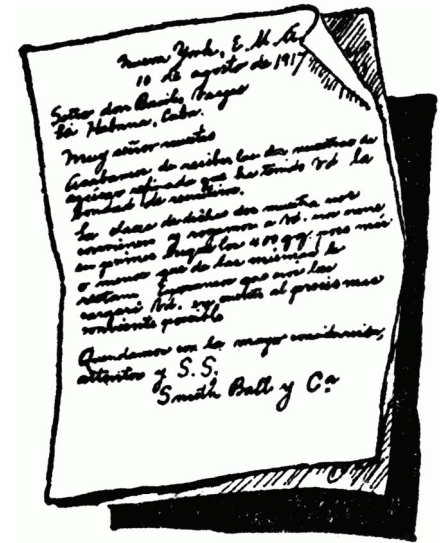 Nueva York, E. U. A.
10 de agosto de 1917
Señor don Basilio Vargas
La Habana, Cuba.
Muy señor nuestro
Acabamos de recibir las dos muestras de
azúcar refinado que ha tenido Vd la
bondad de remitirnos.
Las clases de dichas dos muestras nos
convienen y rogamos a Vd. nos
en primer los 400 qq. poco más
o menos que de las mismas le
restan. Esperamos que nos las
cargará Vd. en cuenta al precio mas
conveniente posible
Quedamos con la mayor consideración,
atentos y S. S.
Smith Ball y Cª